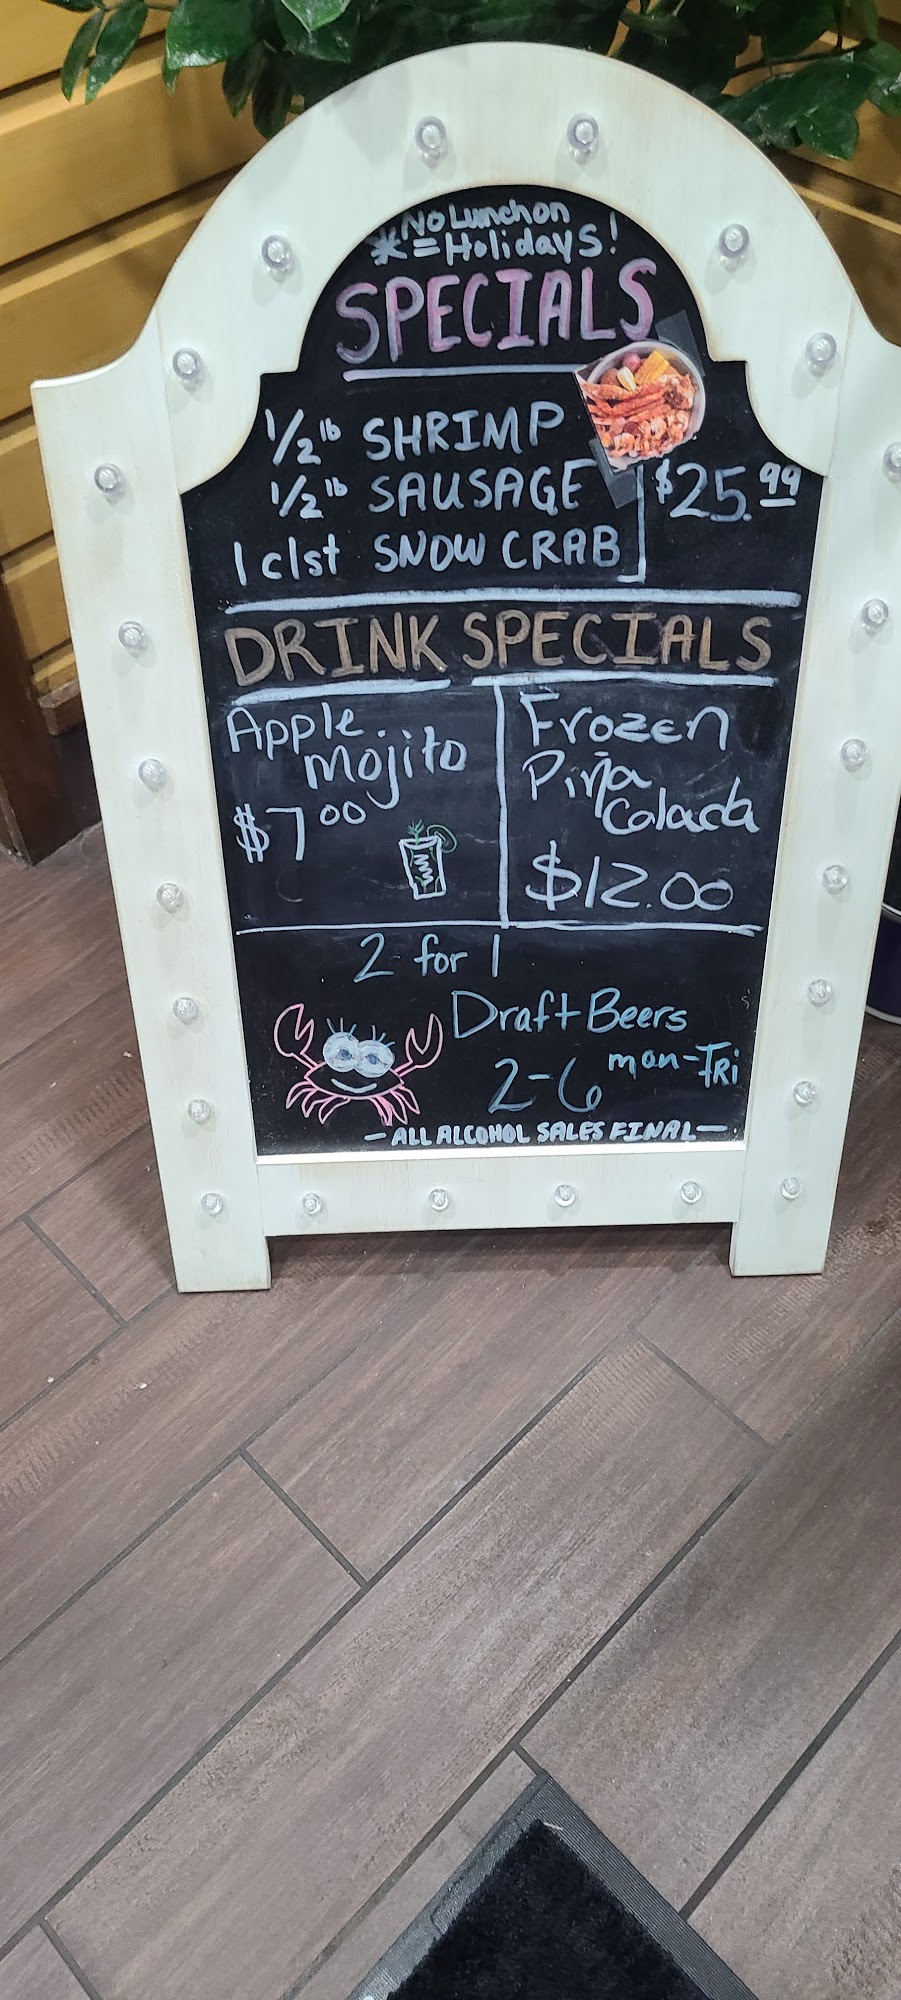 *No Lunch on
= Holidays!
SPECIALS
1/2 lb SHRIMP
1/2 lb SAUSAGE $25.99
1 clst SNOW CRAB
DRINK SPECIALS
Apple
Mojito
$7.00
Frozen
Piña
Colada
$12.00
2 for 1
Draft Beers
2-6 mon-FRi
- ALL ALCOHOL SALES FINAL -